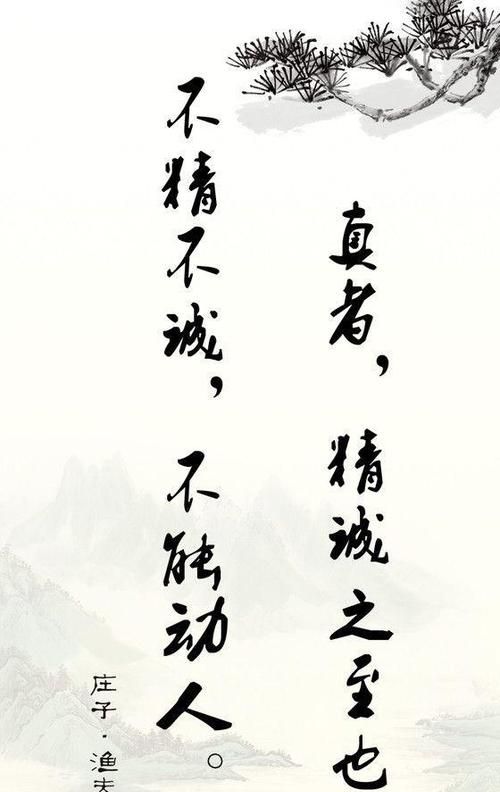 真者，精诚之至也
不精不诚，不能动人。
庄子·渔夫